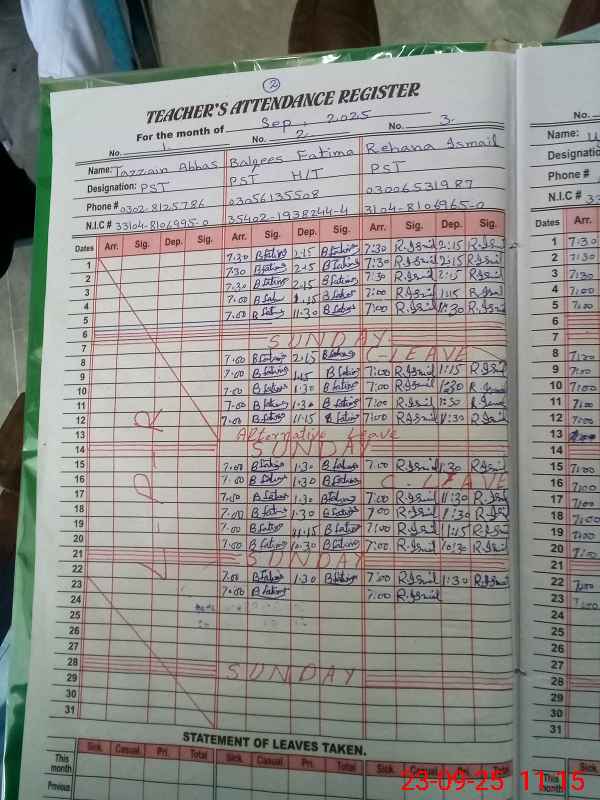 2
TEACHER'S ATTENDANCE REGISTER
For the month of Sep, 2025
No. 1. No. 2. No. 3.
Name: Tazzain Abbas Balqees Fatima Rehana Ismail
Designation: PST PST H/T PST
Phone # 0302-8125786 03056135508 03006531987
N.I.C # 33104-8106995-0 35402-1938244-4 3104-8106965-0
Dates Arr. Sig. Dep. Sig. Arr. Sig. Dep. Sig. Arr. Sig. Dep. Sig.
1 7:30 B.Fatima 2:15 B.Fatima 7:30 R.Ismail 2:15 R.Ismail
2 7:30 B.Fatima 2:15 B.Fatima 7:30 R.Ismail 2:15 R.Ismail
3 7:30 B.Fatima 2:15 B.Fatima 7:30 R.Ismail 2:15 R.Ismail
4 7:00 B.Fatima 1:15 B.Fatima 7:00 R.Ismail 1:15 R.Ismail
5 7:00 B.Fatima 11:30 B.Fatima 7:00 R.Ismail 11:30 R.Ismail
6
7 SUNDAY
8 7:00 B.Fatima 2:15 B.Fatima C-LEAVE
9 7:00 B.Fatima B.Fatima 7:00 R.Ismail 1:15 R.Ismail
10 7:00 B.Fatima 1:30 B.Fatima 7:00 R.Ismail 1:30 R.Ismail
11 7:00 B.Fatima 1:30 B.Fatima 7:00 R.Ismail 1:30 R.Ismail
12 7:00 B.Fatima 11:15 B.Fatima 7:00 R.Ismail R.Ismail
13 Alternative Leave
14 SUNDAY
15 7:00 B.Fatima 1:30 B.Fatima 7:00 R.Ismail 1:30 R.Ismail
16 7:00 B.Fatima 1:30 B.Fatima C.LEAVE
17 B.Fatima 1:30 B.Fatima 7:00 R.Ismail 1:30 R.Ismail
18 7:00 B.Fatima 1:30 B.Fatima 7:00 R.Ismail 1:30 R.Ismail
19 7:00 B.Fatima 11:15 B.Fatima 7:00 R.Ismail 11:15 R.Ismail
20 7:00 B.Fatima 10:30 B.Fatima 7:00 R.Ismail 10:30 R.Ismail
21 SUNDAY
22 7:00 B.Fatima 1:30 B.Fatima 7:00 R.Ismail 1:30 R.Ismail
23 7:00 B.Fatima 7:00 R.Ismail
24
25
26
27
28 SUNDAY
29
30
31
STATEMENT OF LEAVES TAKEN.
Sick. Casual. Pri. Total Sick. Casual. Pri. Total Sick. Casual. Pri. Total
This month
Previous
No.
Name:
Designatio
Phone #
N.I.C #
Dates Arr.
1 7:30
2 7:30
3 7:30
4 7:00
5 7:00
6
7
8 7:00
9 7:00
10 7:00
11 7:00
12 7:00
13
14
15 7:00
16 7:00
17 7:00
18 7:00
19 7:00
20 7:00
21
22 7:00
23 7:00
24
25
26
27
28
29
30
31
This month
Sick
23-09-25 11:15